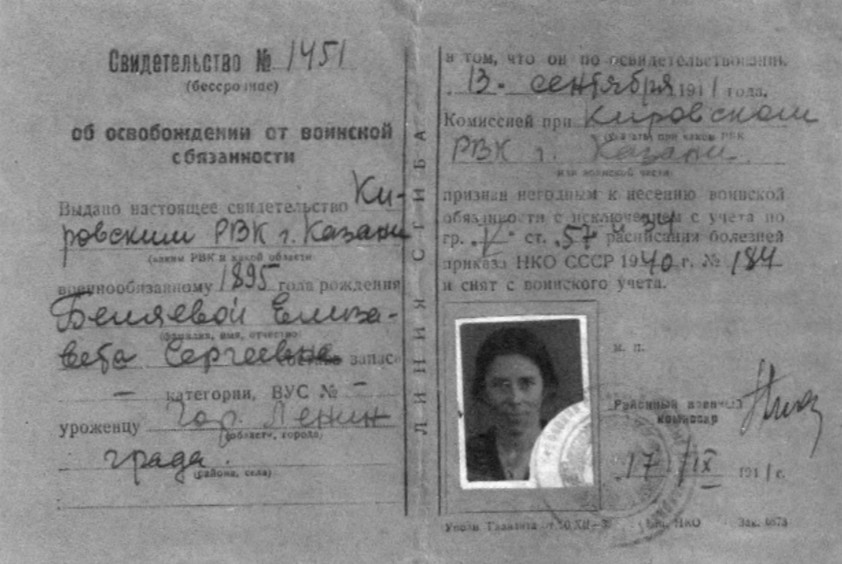 Свидетельство № 1451
(бессрочное)
об освобождении от воинской
обязанности
Выдано настоящее свидетельство Ки-
ровским РВК г. Казани
(каким РВК и какой области)
военнообязанному 1895 года рождения
Беляевой Елиза-
(фамилия, имя, отчество)
вета Сергеевна состава запаса
— категории, ВУС № —
уроженцу гор. Ленин
(области, города)
града.
(района, села)
ЛИНИЯ СГИБА
в том, что он по освидетельствовании,
13 сентября 1941 года,
Комиссией при Кировском
(указать при каком РВК
РВК г. Казани
или воинской части)
признан негодным к несению воинской
обязанности с исключением с учета по
гр. ст. 57 и расписания болезней
приказа НКО СССР 1940 г. № 184
и снят с воинского учета.
м. п.
Районный военный
комиссар
17/IX 1941 г.
НКО Зак.